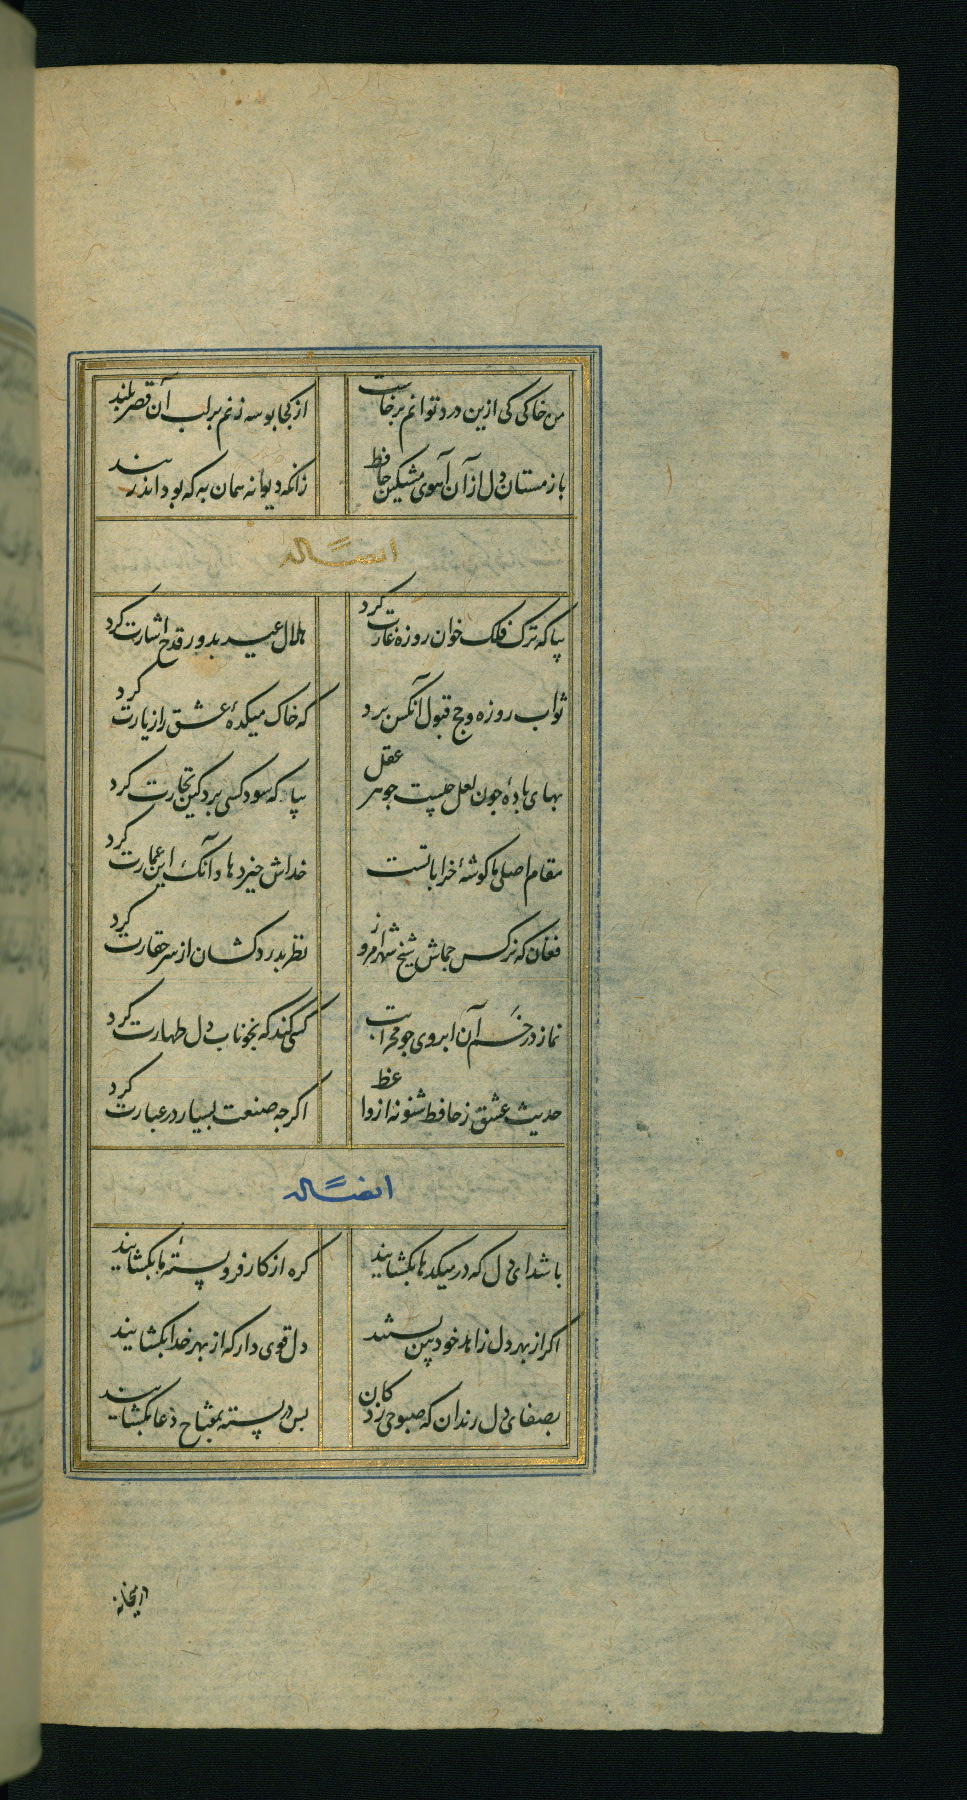 من خاکی کی ازین درد توانم برخاست از کجا بوسه زنم بر لب آن قصر بلند
باز مستان دل از آن آهوی مشکین حافظ زانکه دیوانه همان به که بود اندر بند
ایضاً له
بیا که ترک فلک خوان روزه غارت کرد هلال عید بدور قدح اشارت کرد
ثواب روزه و حج قبول آنکس برد که خاک میکدهٔ عشق را زیارت کرد
بهای بادهٔ جون لعل جیست جوهر عقل بیا که سود کسی برد کین تجارت کرد
مقام اصلی ما کوشهٔ خراباتست خداش خیر دهاد آنک این عمارت کرد
فغان که نرکس جماش شیخ شهر امروز نظر بدردکشان از سر حقارت کرد
نماز در خم آن ابروی جو محرابت کسی کند که بخوناب دل طهارت کرد
حدیث عشق ز حافظ شنو نه از واعظ اکرجه صنعت بسیار در عبارت کرد
ایضاً له
باشد ای دل که در میکدها بکشایند کره از کار فروبستهٔ ما بکشایند
اکر از بهر دل زاهد خودبین بستند دل قوی دار که از بهر خدا بکشایند
بصفای دل رندان که صبوحی زدکان بس در بسته بمفتاح دعا بکشایند
در میخانه